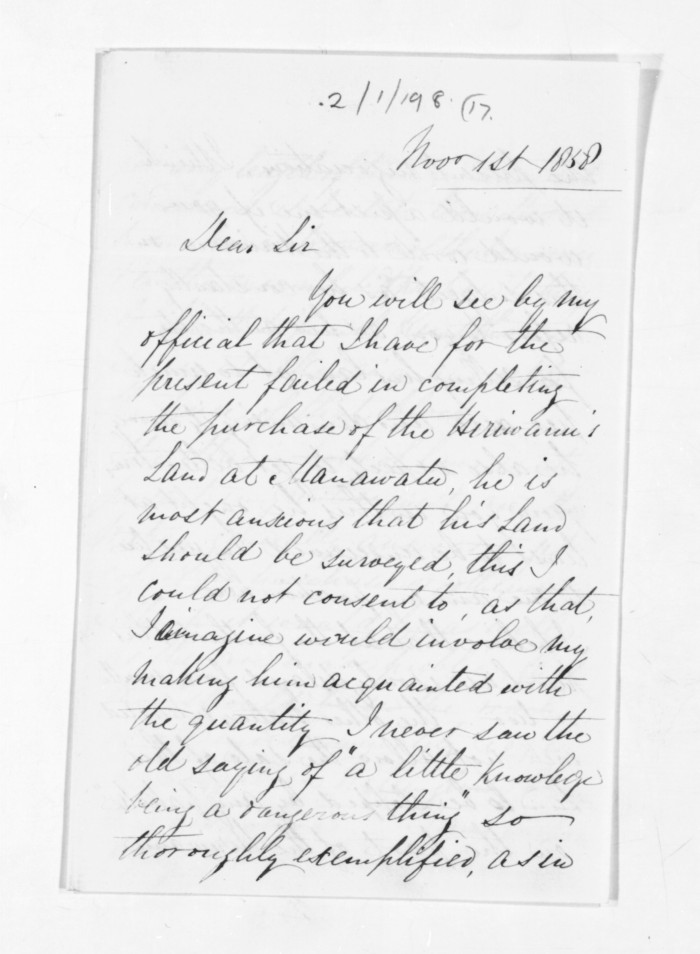 2/1/198. (17.
Novr 1st 1858
Dear Sir
You will see by my
official that I have for the
present failed in completing
the purchase of the Hiriwanu's
Land at Manawatu, he is
most anxious that his Land
should be surveyed, this I
could not consent to, as that,
I imagine would involve my
making him acquainted with
the quantity I never saw the
old saying of "a little knowlege
being a dangerous thing" so
thoroughly exemplified, as in